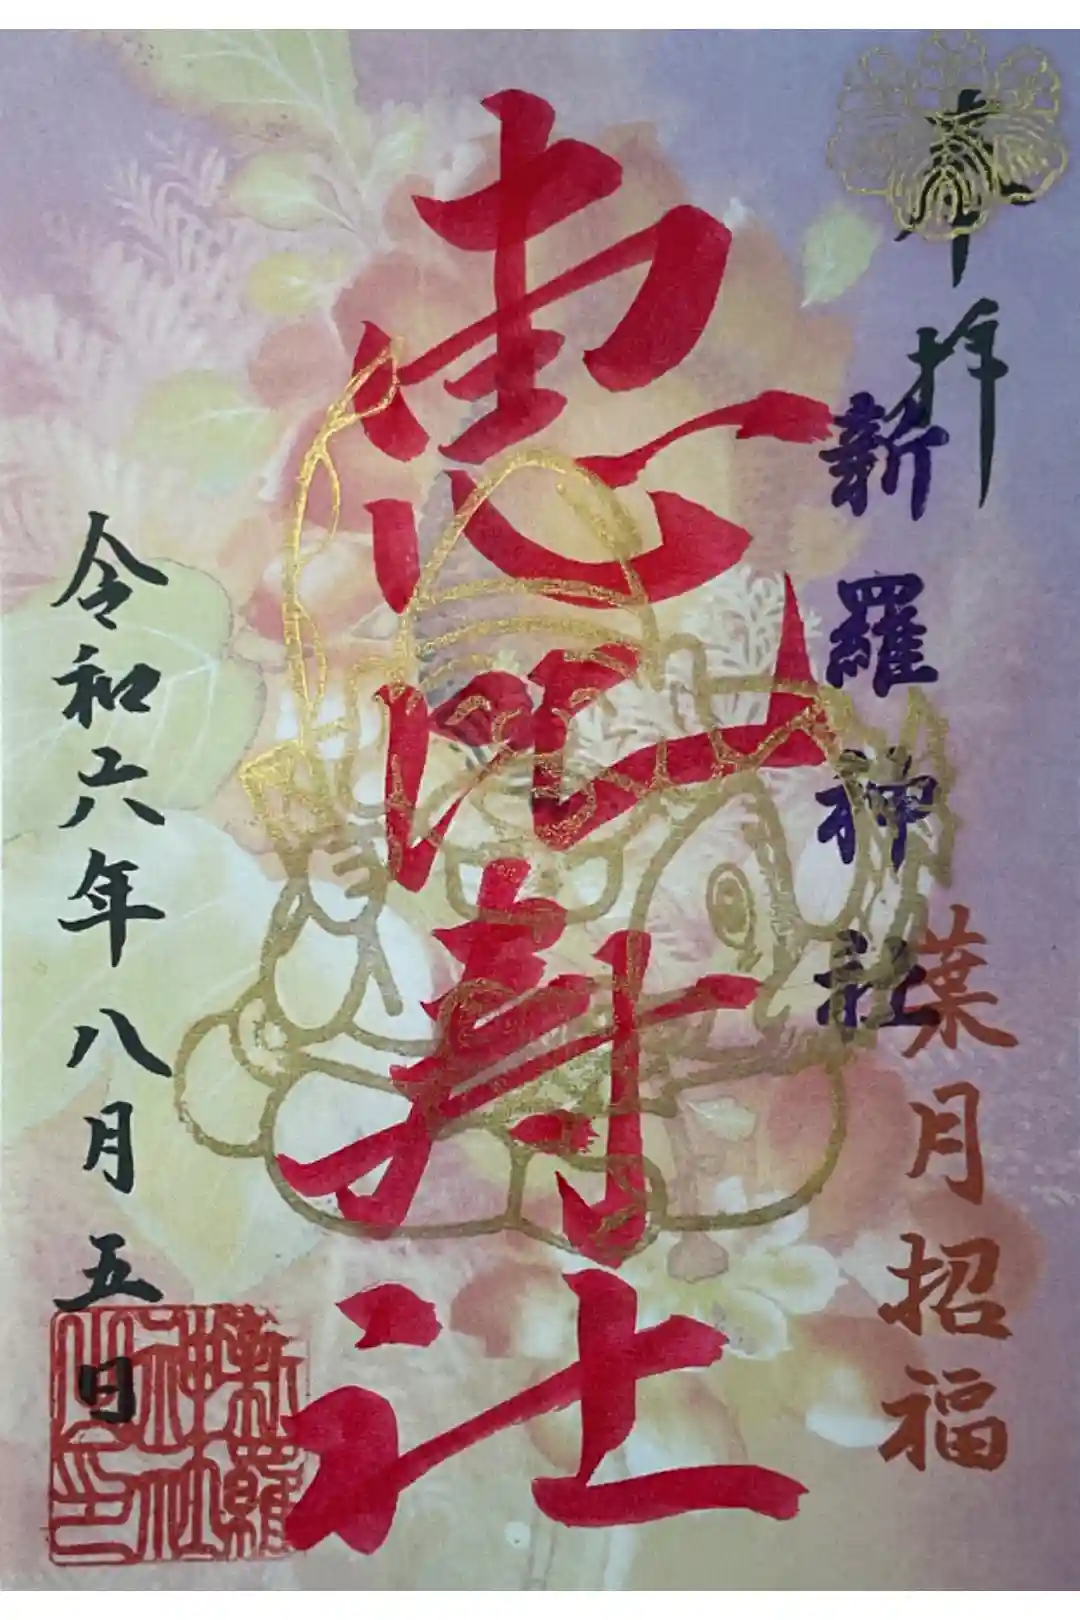 奉拝
新羅神社
葉月招福
恵比寿社
令和六年八月五日
新羅
神社
之印